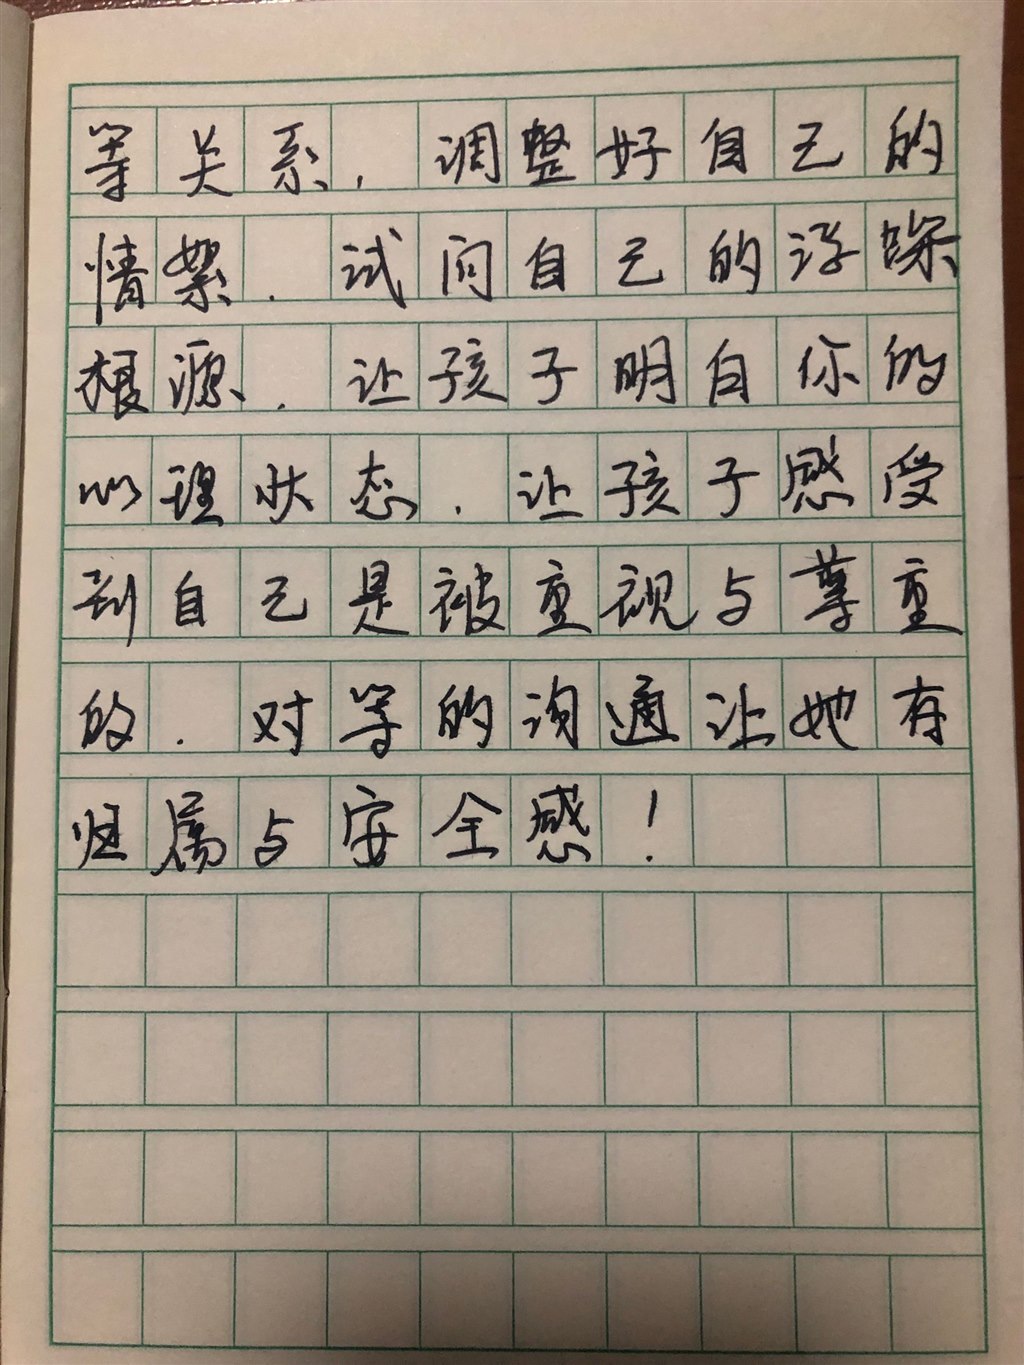 等关系，调整好自己的
情絮．试问自己的浮躁
根源．让孩子明白你的
心理状态．让孩子感受
到自己是被重视与尊重
的．对等的沟通让她有
归属与安全感！